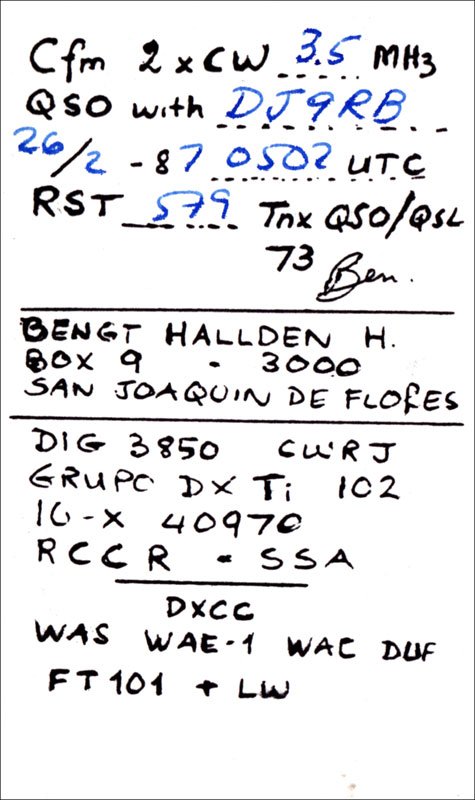 Cfm 2 x CW 3.5 MHz
QSO with DJ9RB
26/2 - 87 0502 UTC
RST 579 Tnx QSO/QSL
73 Ben.
BENGT HALLDEN H.
BOX 9 - 3000
SAN JOAQUIN DE FLORES
DIG 3850 CWRJ
GRUPO DX Ti 102
10-X 40970
RCCR - SSA
DXCC
WAS WAE-1 WAC DUF
FT101 + LW